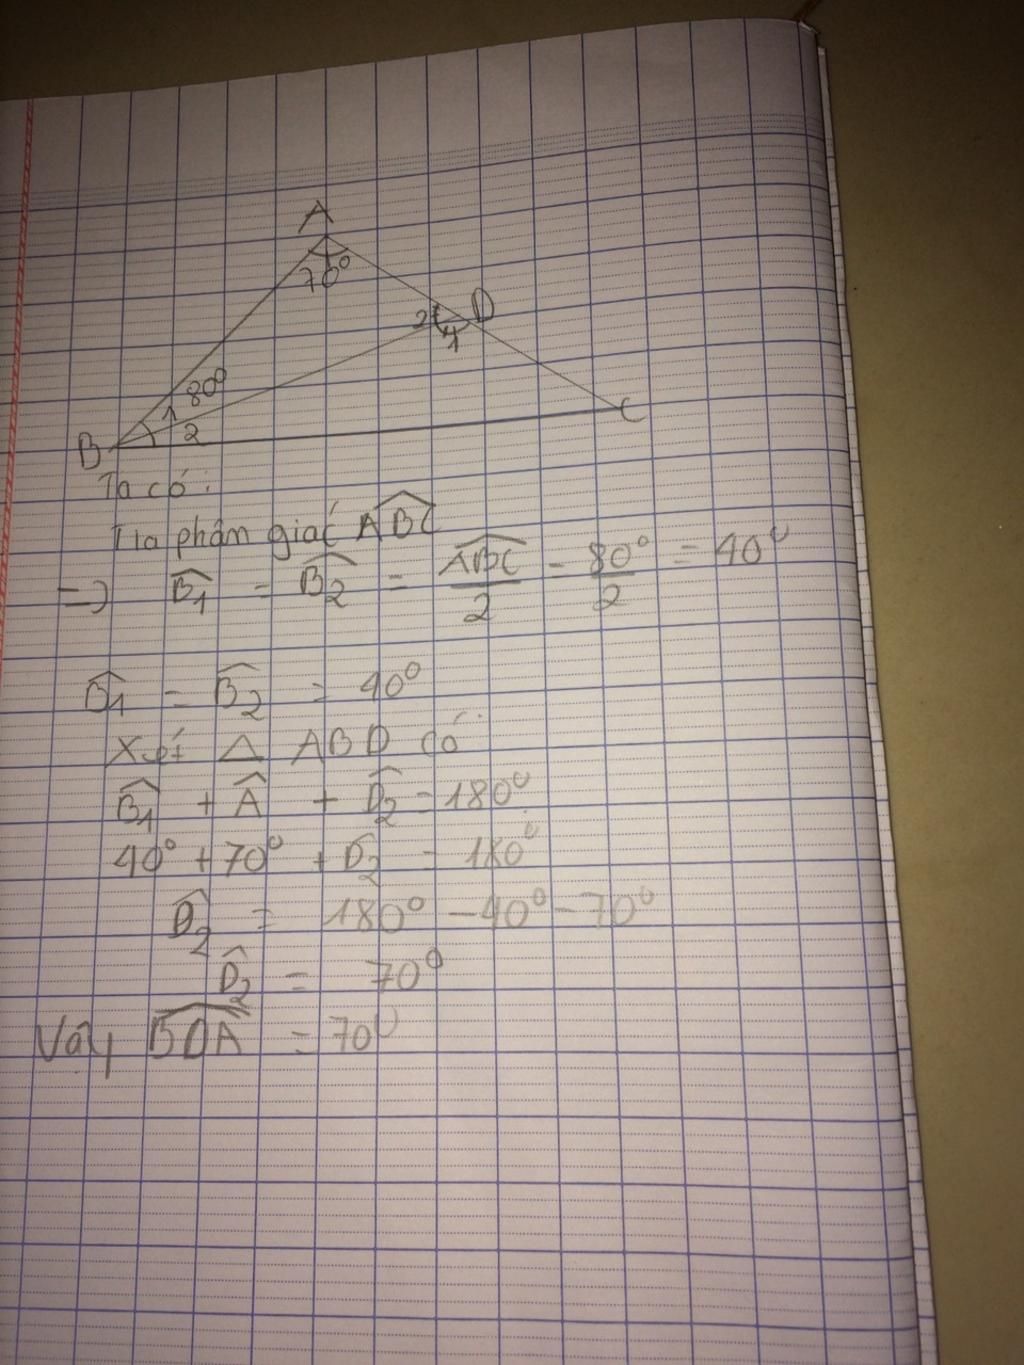 A
70°
2
D
1
80°
1
2
B
C
Ta có:
Tia phân giác ABC
=> B1 = B2 = ABC/2 = 80°/2 = 40°
B1 = B2 = 40°
Xét Δ ABD có:
B1 + A + D2 = 180°
40° + 70° + D2 = 180°
D2 = 180° - 40° - 70°
D2 = 70°
Vậy BDA = 70°